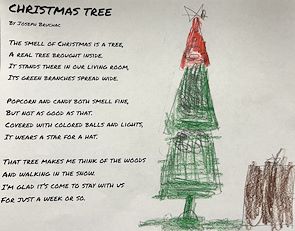 CHRISTMAS TREE
BY JOSEPH BRUCHAC
THE SMELL OF CHRISTMAS IS A TREE,
A REAL TREE BROUGHT INSIDE.
IT STANDS THERE IN OUR LIVING ROOM,
ITS GREEN BRANCHES SPREAD WIDE.
POPCORN AND CANDY BOTH SMELL FINE,
BUT NOT AS GOOD AS THAT.
COVERED WITH COLORED BALLS AND LIGHTS,
IT WEARS A STAR FOR A HAT.
THAT TREE MAKES ME THINK OF THE WOODS
AND WALKING IN THE SNOW.
I'M GLAD IT'S COME TO STAY WITH US
FOR JUST A WEEK OR SO.